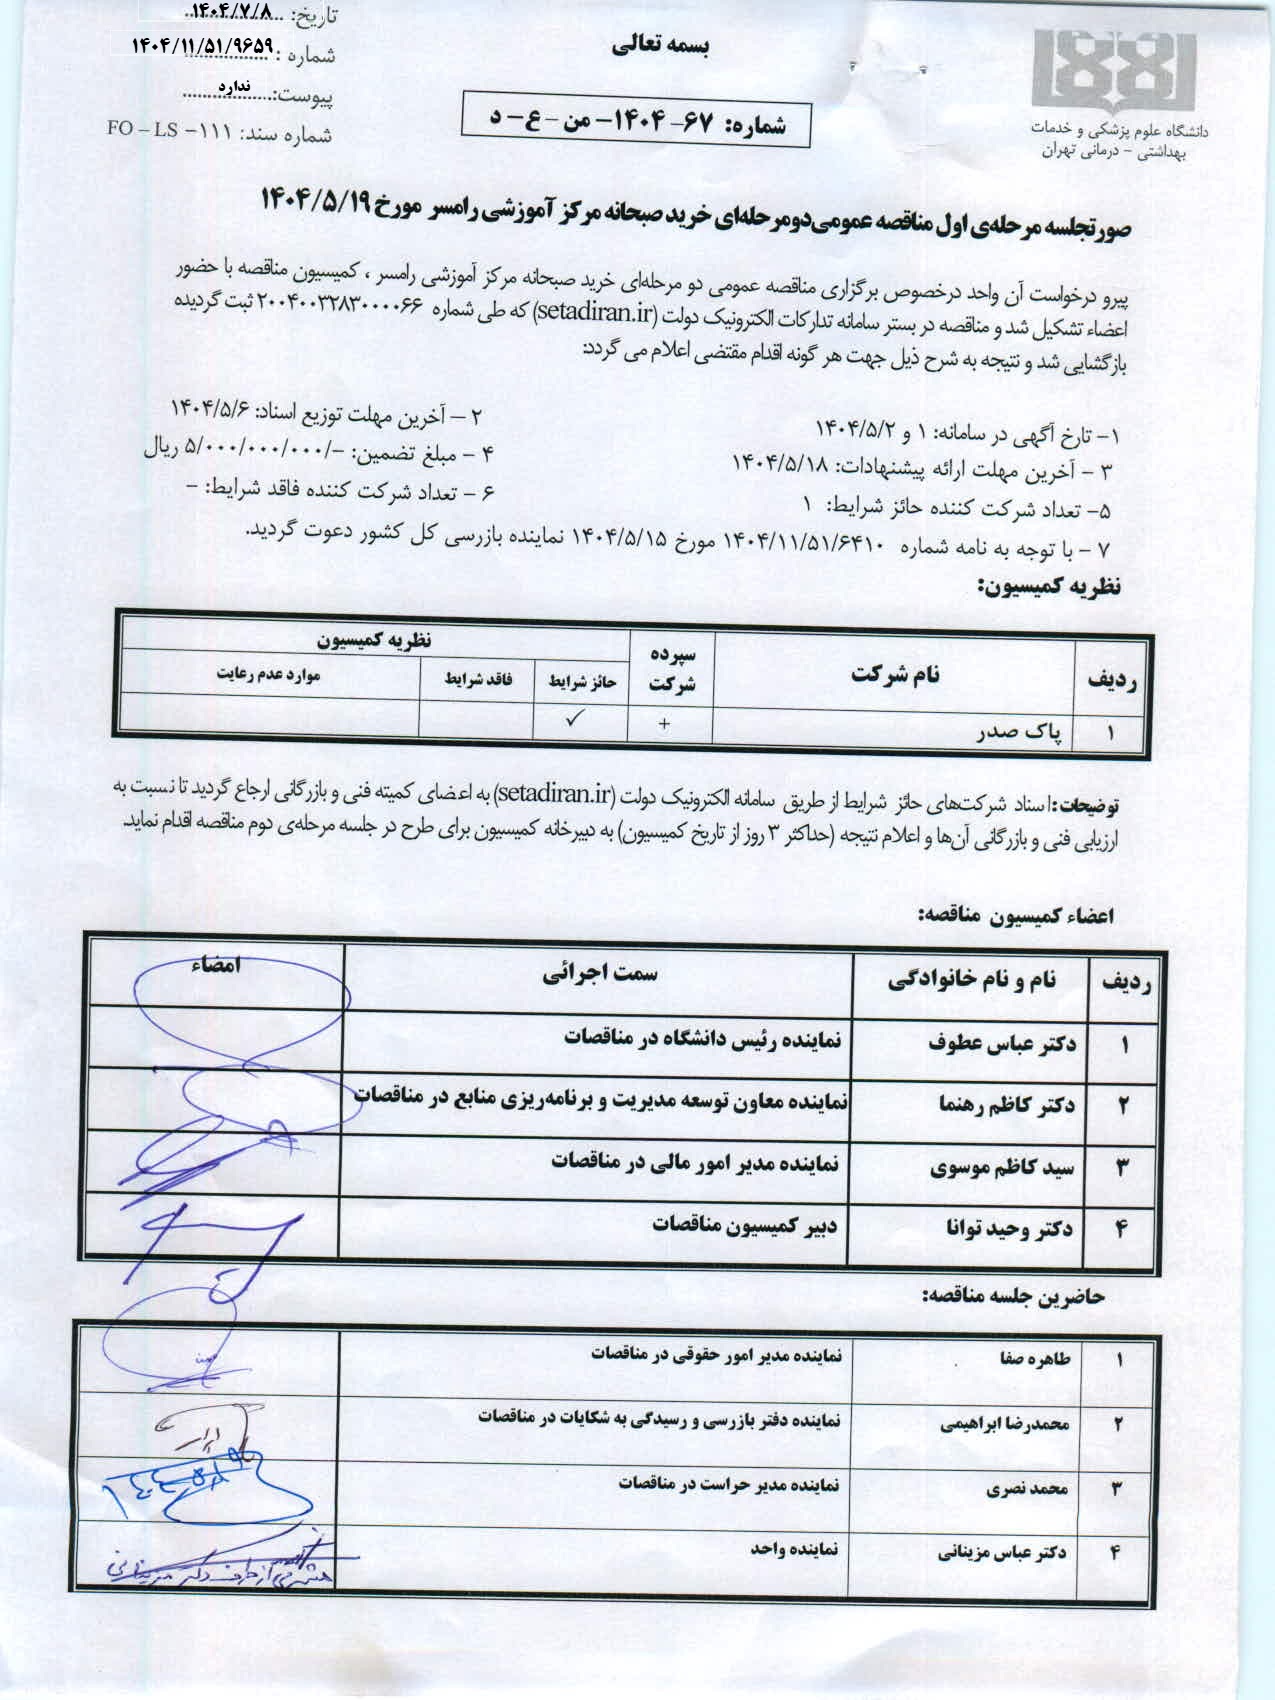 تاریخ: ۱۴۰۴/۷/۸
شماره: ۱۴۰۴/۱۱/۵۱/۹۶۵۹
پیوست: ندارد
شماره سند: ۱۱۱- FO – LS
بسمه تعالی
شماره: ۶۷- ۱۴۰۴- من – ع – د
دانشگاه علوم پزشکی و خدمات
بهداشتی – درمانی تهران
صورتجلسه مرحله‌ی اول مناقصه عمومی دومرحله‌ای خرید صبحانه مرکز آموزشی رامسر مورخ ۱۴۰۴/۵/۱۹
پیرو درخواست آن واحد درخصوص برگزاری مناقصه عمومی دو مرحله‌ای خرید صبحانه مرکز آموزشی رامسر ، کمیسیون مناقصه با حضور
اعضاء تشکیل شد و مناقصه در بستر سامانه تدارکات الکترونیک دولت (setadiran.ir) که طی شماره ۲۰۰۴۰۰۳۲۸۳۰۰۰۰۶۶ ثبت گردیده
بازگشایی شد و نتیجه به شرح ذیل جهت هر گونه اقدام مقتضی اعلام می گردد:
۱- تارخ آگهی در سامانه: ۱ و ۱۴۰۴/۵/۲
۲ – آخرین مهلت توزیع اسناد: ۱۴۰۴/۵/۶
۳ – آخرین مهلت ارائه پیشنهادات: ۱۴۰۴/۵/۱۸
۴ – مبلغ تضمین: -/۵/۰۰۰/۰۰۰/۰۰۰ ریال
۵- تعداد شرکت کننده حائز شرایط: ۱
۶ – تعداد شرکت کننده فاقد شرایط: –
۷ – با توجه به نامه شماره ۱۴۰۴/۱۱/۵۱/۶۴۱۰ مورخ ۱۴۰۴/۵/۱۵ نماینده بازرسی کل کشور دعوت گردید.
نظریه کمیسیون:
ردیف نام شرکت سپرده شرکت نظریه کمیسیون
حائز شرایط فاقد شرایط موارد عدم رعایت
۱ پاک صدر + ✓
توضیحات: اسناد شرکت‌های حائز شرایط از طریق سامانه الکترونیک دولت (setadiran.ir) به اعضای کمیته فنی و بازرگانی ارجاع گردید تا نسبت به
ارزیابی فنی و بازرگانی آن‌ها و اعلام نتیجه (حداکثر ۳ روز از تاریخ کمیسیون) به دبیرخانه کمیسیون برای طرح در جلسه مرحله‌ی دوم مناقصه اقدام نماید.
اعضاء کمیسیون مناقصه:
ردیف نام و نام خانوادگی سمت اجرائی امضاء
۱ دکتر عباس عطوف نماینده رئیس دانشگاه در مناقصات
۲ دکتر کاظم رهنما نماینده معاون توسعه مدیریت و برنامه‌ریزی منابع در مناقصات
۳ سید کاظم موسوی نماینده مدیر امور مالی در مناقصات
۴ دکتر وحید توانا دبیر کمیسیون مناقصات
حاضرین جلسه مناقصه:
۱ طاهره صفا نماینده مدیر امور حقوقی در مناقصات
۲ محمدرضا ابراهیمی نماینده دفتر بازرسی و رسیدگی به شکایات در مناقصات
۳ محمد نصری نماینده مدیر حراست در مناقصات
۴ دکتر عباس مزینانی نماینده واحد
از طرف دکتر مزینانی